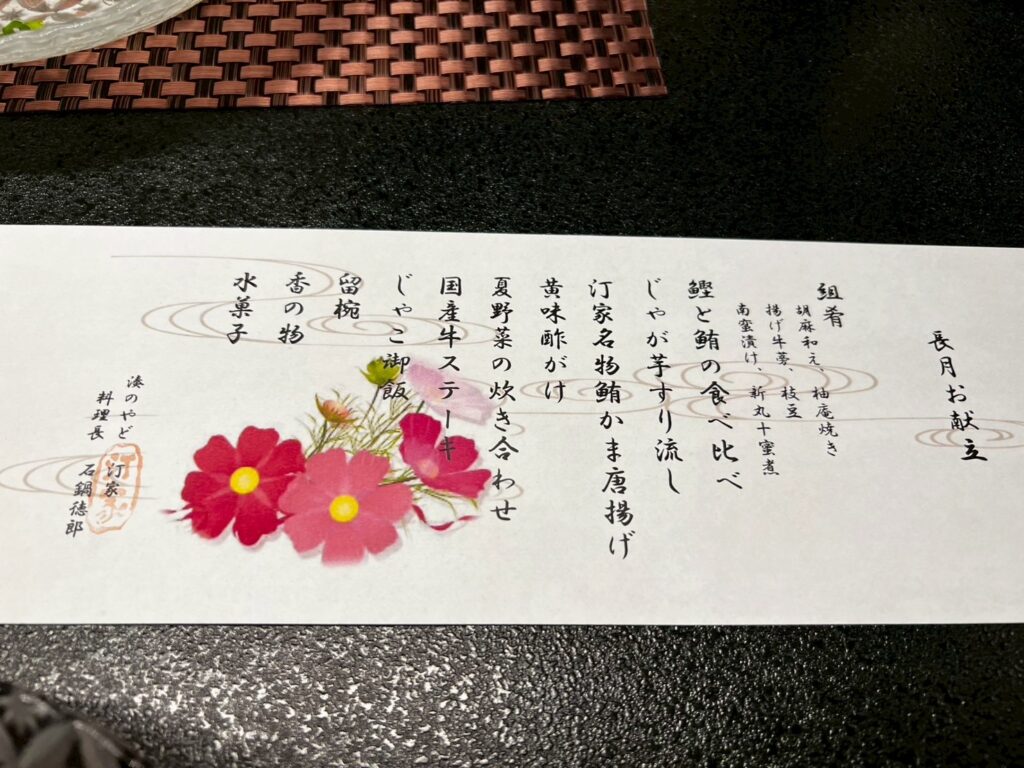 長月お献立
組肴
胡麻和え、柚庵焼き
揚げ牛蒡、枝豆
南蛮漬け、新丸十蜜煮
鰹と鮪の食べ比べ
じゃが芋すり流し
汀家名物鮪かま唐揚げ
黄味酢がけ
夏野菜の炊き合わせ
国産牛ステーキ
じゃこ御飯
留椀
香の物
水菓子
湊のやど 汀家
料理長 石鍋徳郎